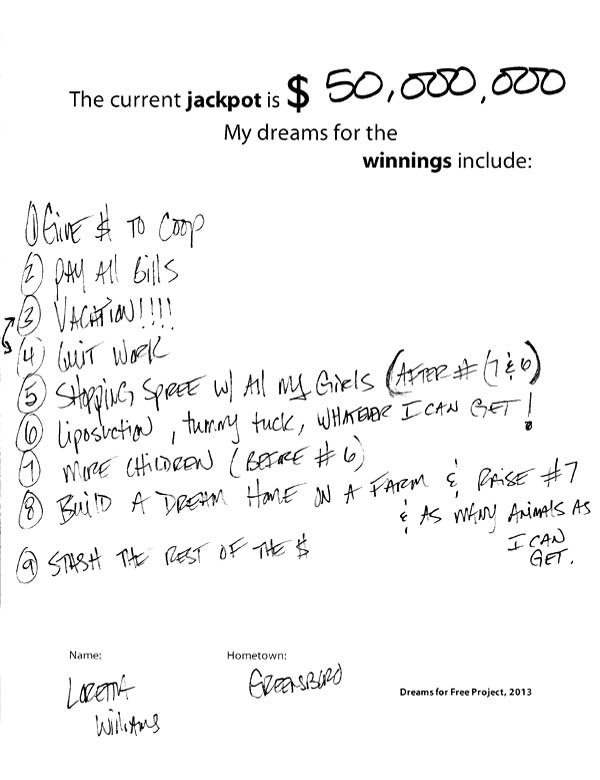 The current jackpot is $ 50,000,000
My dreams for the
winnings include:
① Give $ to Coop
② Pay All Bills
③ Vacation!!!!
④ Quit Work
⑤ Shopping Spree w/ All my Girls (After # 7 & 6)
⑥ Liposuction, tummy tuck, whatever I can get!
⑦ More Children (Before # 6)
⑧ Build a Dream Home on a Farm & Raise #7
& as many animals as
I can
get.
⑨ Stash the rest of the $
Name: Hometown:
Loretta Greensboro
Williams
Dreams for Free Project, 2013